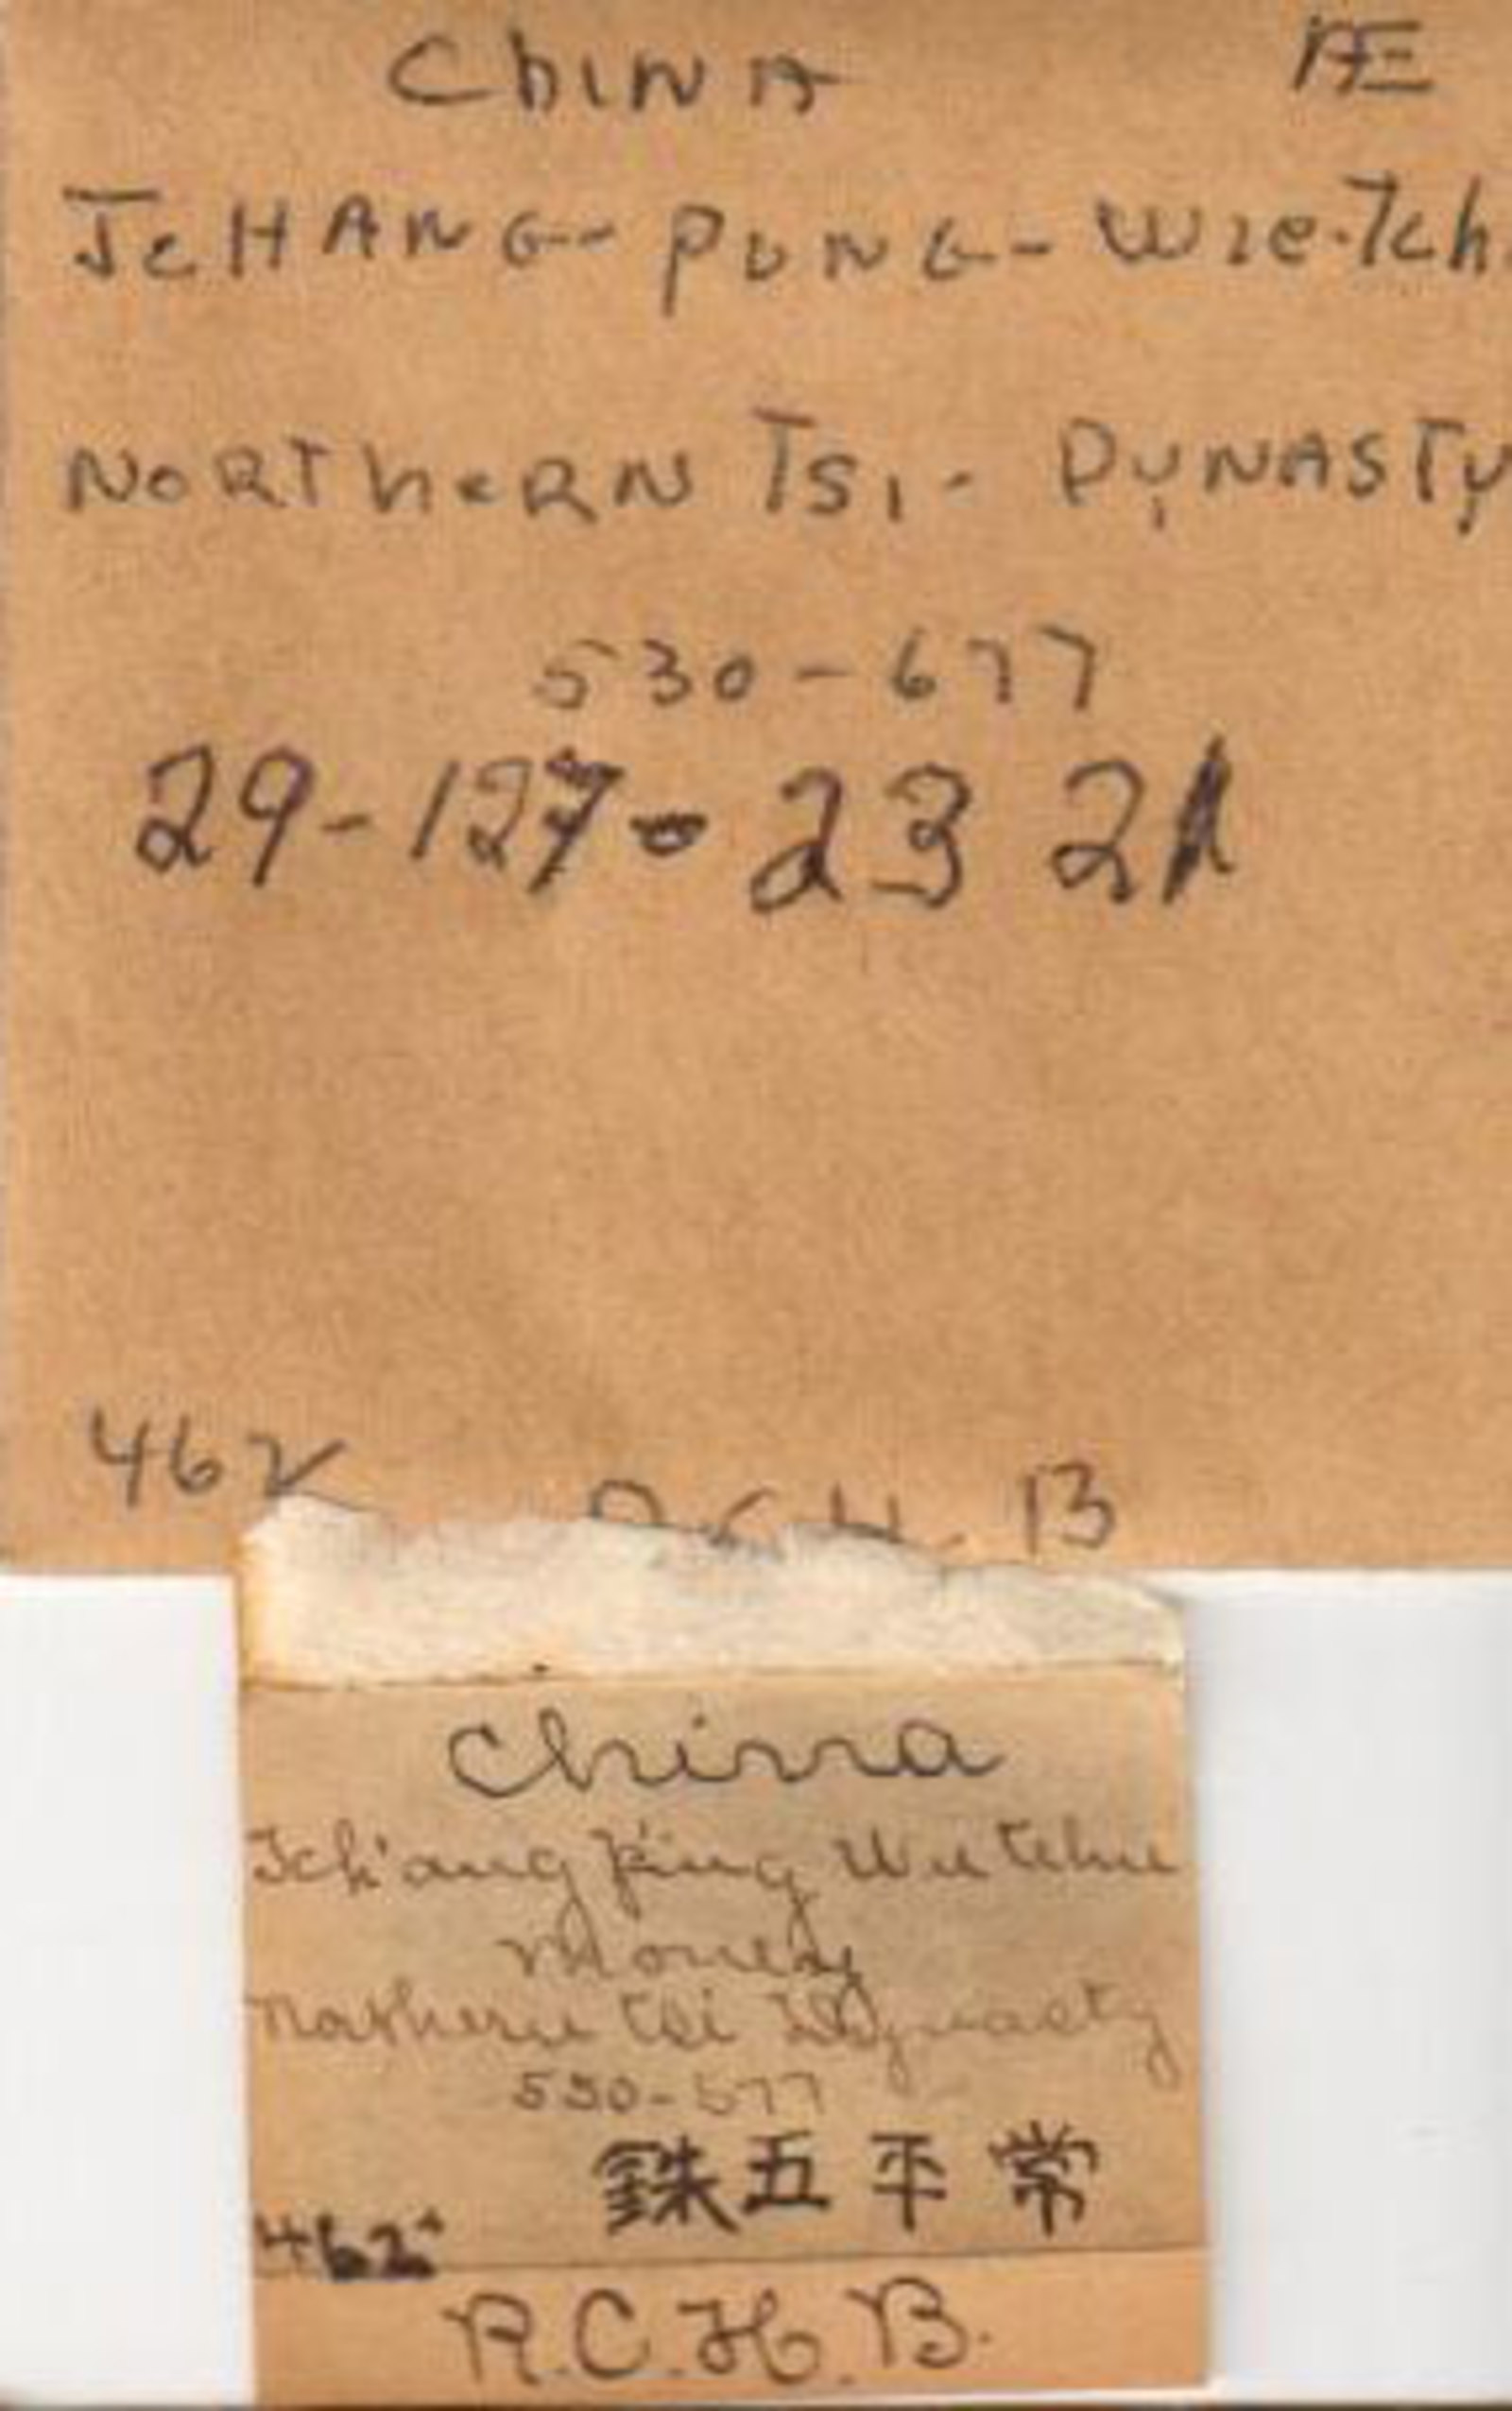 China Æ
TcHANG-PUNG-Wie-Tch.
NORTHERN Tsi- DYNASTY
530-677
29-127-23 21
462
R C H. B
China
Tch'ang p'ing Wu tchu
Money
Northern Tsi Dynasty
550-577
銖五平常
462
R.C.H.B.